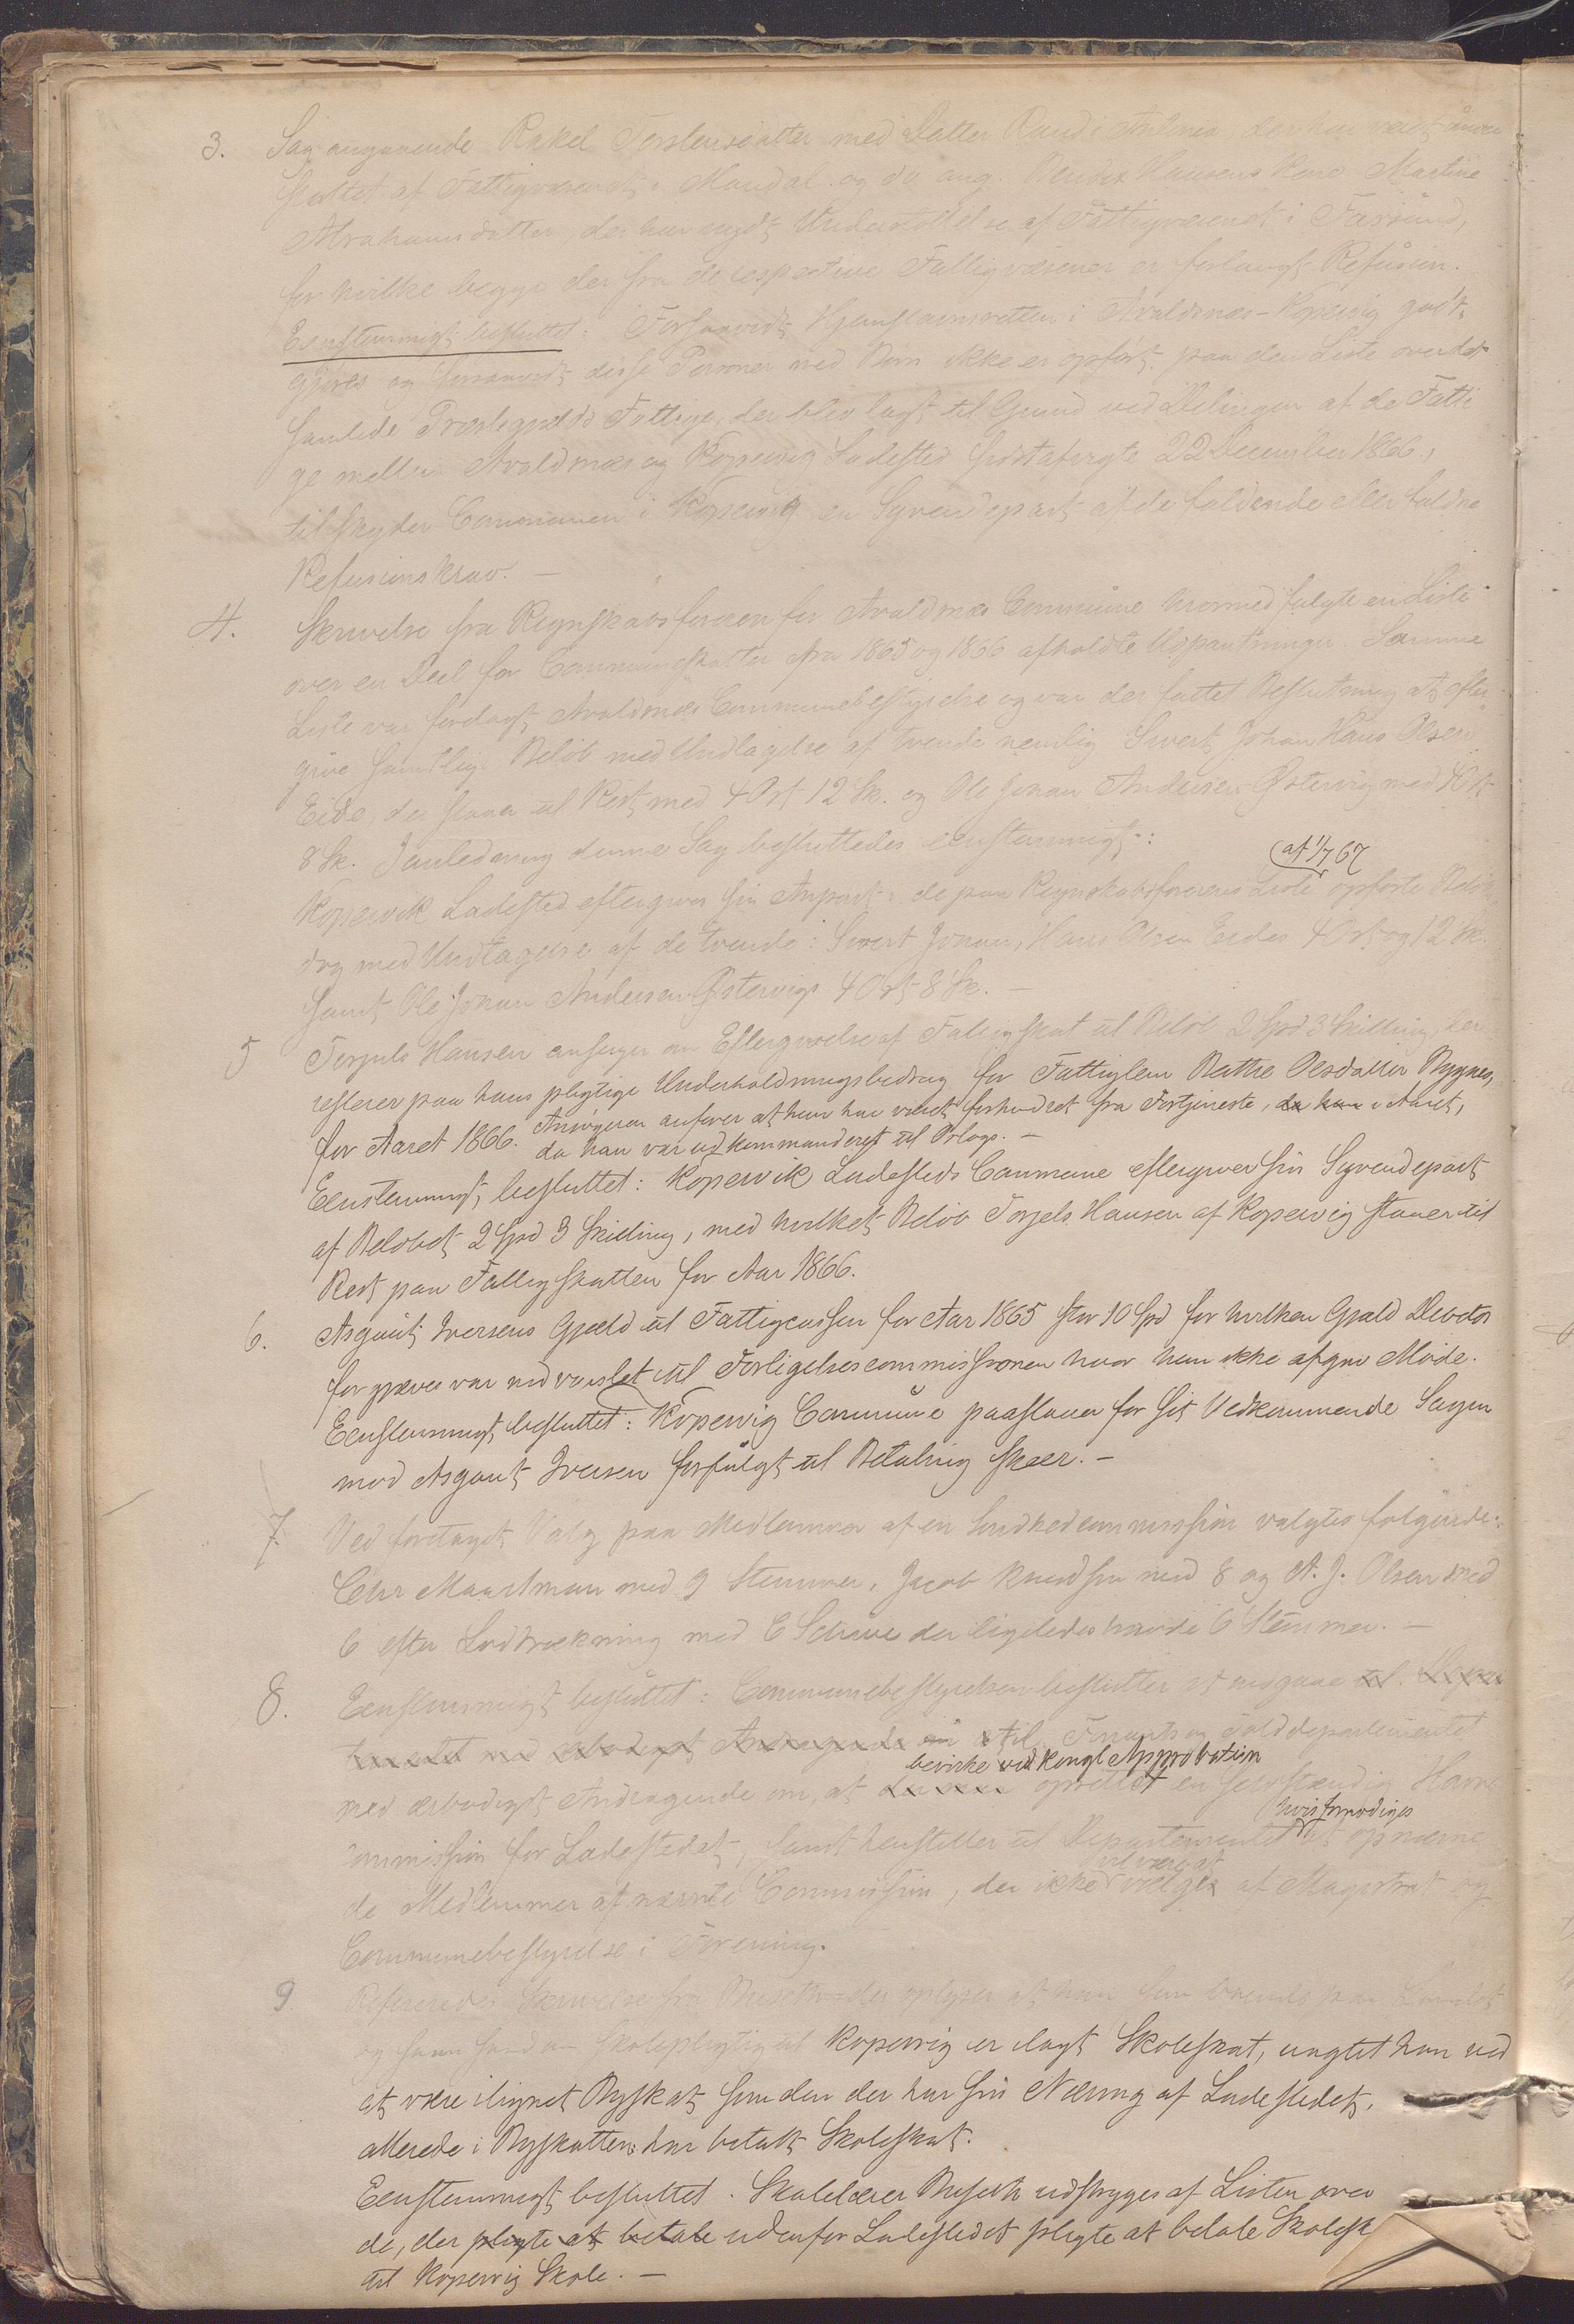 3. Sag angaaende Rakel Torstensdatter med Datter Randi Antonia der har været under
støttet af Fattigvæsenet i Mandal og do ang. Bendix Hansens Kone Martine
Abrahamsdatter, der har nydt Understøttelse af Fattigvæsenet i Farsund,
for hvilke begge der fra de respective Fattigvæsener er forlangt Refusion.
Eenstemmigt besluttet: Forsaavidt Hjemstavnsretten i Avaldsnes-Kopervig godt,
gjøres og forsaavidt disse Personer med Børn ikke er opført paa den Liste over det
samlede Præstegjelds Fattige, der blev lagt til Grund ved Delingen af de Fatti
ge mellem Avaldsnes og Kopervig Ladested sidstafvigte 22 December 1866,
tilskyder Communen i Kopervig en Syvendepart af de faldende eller faldne
Refusionskrav. —
4. Skrivelse fra Regnskabsføreren for Avaldsnes Commune hvormed fulgte en Liste
over en Deel for Communeskatter fra 1865 og 1866 afholdte Udpantninger. Samme
Liste var forelagt Avaldsnes Communebestyrelse og var der fattet Beslutning at efter
give samtlige Beløb med Undtagelse af tvende nemlig Sivert Johan Hans Olsen
Eide, der staaer til Rest med 4 Ort 12 Sk. og Ole Johan Andersen Østervig med 4 Ort
8 Sk. I Anledning denne Sag besluttedes eenstemmigt:
af 1/7 67
Kopervik Ladested eftergiver sin Anpart i de paa Regnskabsførerens Liste opførte Beløb
dog med Undtagelse af de tvende: Sivert Johan, Hans Olsen Eides 4 Ort og 12 Sk.
samt Ole Johan Andersen Østervigs 4 Ort 8 Sk. —
5 Torjuls Hansen ansøger om Eftergivelse af Fattigskat til Beløb 2 Spd 3 Skilling der
resterer paa hans pligtige Underholdningsbidrag for Fattiglem Berthe Olsdatter Bygnes,
for Aaret 1866. Ansøgeren anfører at han har været forhindret fra Fortjeneste, da han i Aaret,
da han var udkommanderet til Orlogs. —
Eenstemmigt besluttet: Kopervik Ladesteds Commune eftergiver sin Syvendepart
af Beløbet 2 Spd 3 Skilling, med hvilket Beløb Torjels Hansen af Kopervig staaer til
Rest paa Fattigskatten for Aar 1866.
6. Asgaut Iversens Gjæld til Fattigcassen for Aar 1865 stor 10 Spd for hvilken Gjæld Debitor
forgjæves var indvarslet til Forligelsescommissionen hvor han ikke afgav Møde.
Eenstemmigt besluttet: Kopervig Commune paastaaer for sit Vedkommende Sagen
mod Asgaut Iversen forfulgt til Betaling skeer. —
7. Ved foretaget Valg paa Medlemmer af en Sundhedcommission valgtes følgende:
Chr Maartman med 9 Stemmer, Jacob Knudsen med 8 og A. J. Olsen med
6 efter Lodtrækning med E Schiøe der ligeledes havde 6 Stemmer. —
8. Eenstemmigt besluttet: Communebestyrelsen beslutter at indgaae til
med ærbødigst Andragende om til Finants og Tolddepartementet
bevirke ved kongl Approbation
med ærbødigst Andragende om, at oprettet en selvstændig Havne
hvis formodiges
commission for Ladestedet, samt henstiller til Departementet at opnævne
vil være at
de Medlemmer af nævnte Commission, der ikke vælges af Magistrat og
Communebestyrelse i Forening.
9 Refereredes Skrivelse fra Buseth der oplyser at han som boende paa Landet
og som saadan skolepligtig til Kopervig er ilagt Skoleskat, uagtet han ved
at være ilignet Byskat som den der har sin Næring af Ladestedet,
allerede i Byskatten har betalt Skoleskat.
Eenstemmigt besluttet. Skolelærer Buseth udstryges af Listen over
de, der pligte at betale udenfor Ladestedet pligte at betale Skolesk
til Kopervig Skole. —